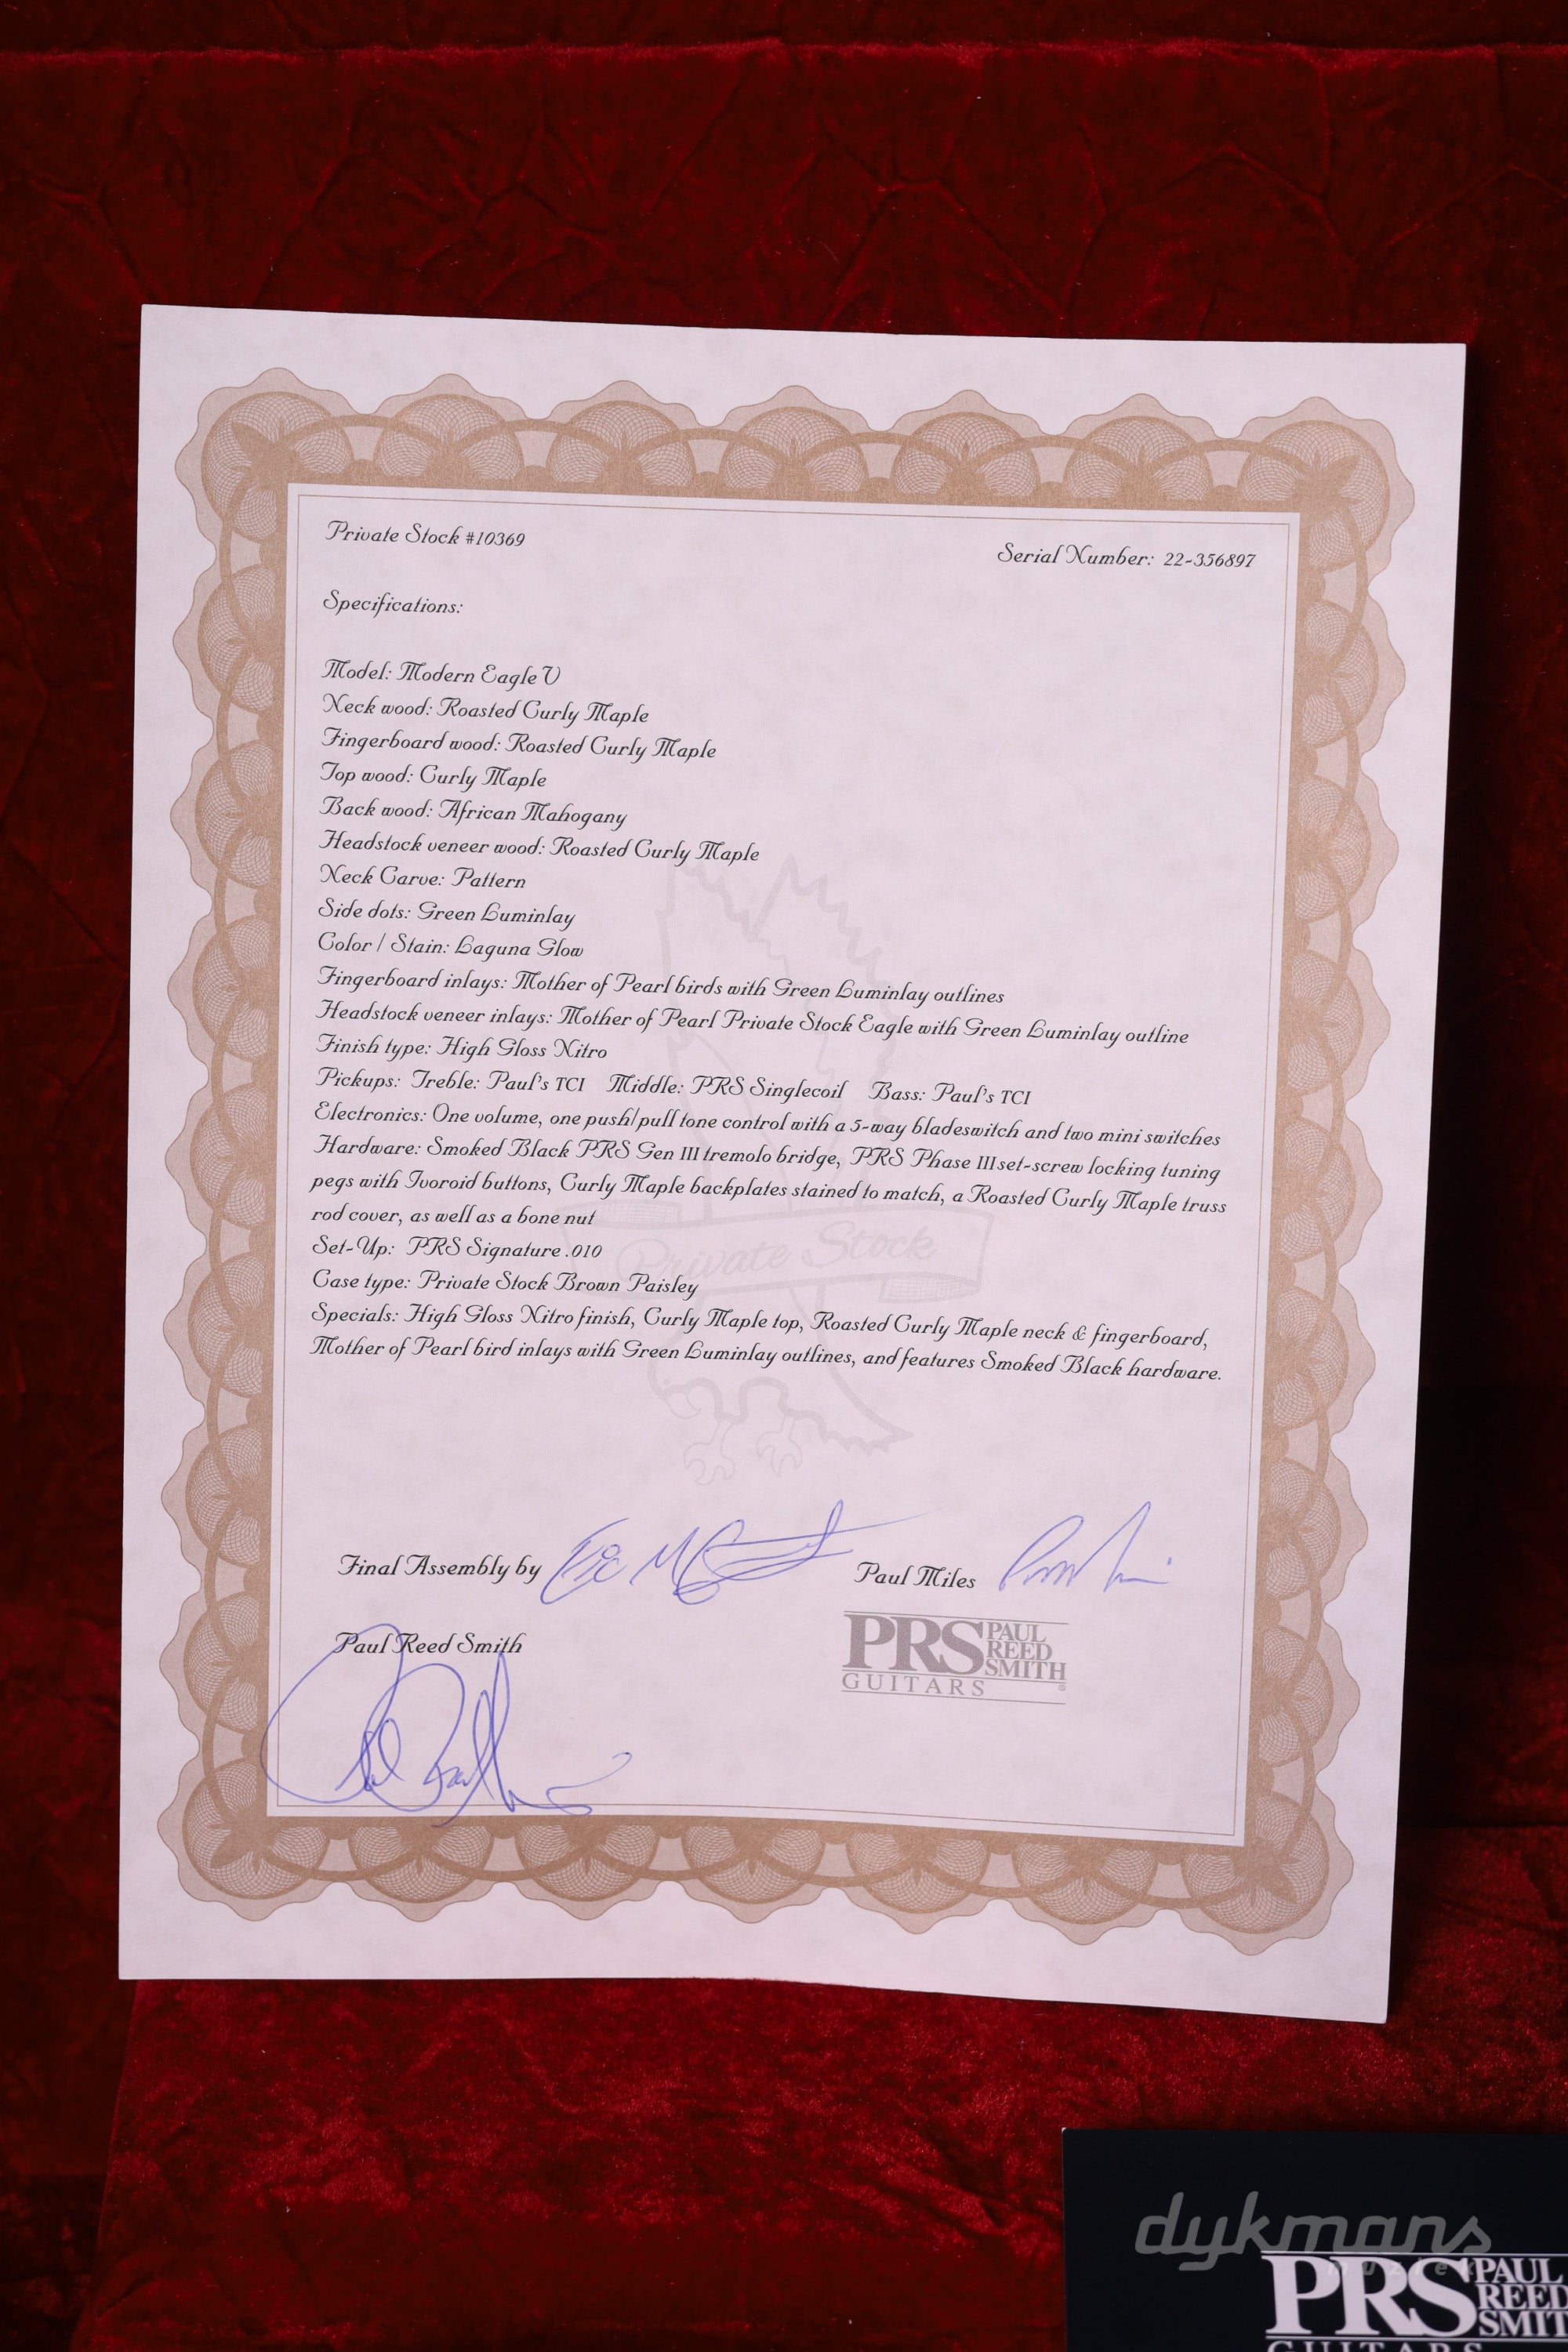 Private Stock #10369
Serial Number: 22-356897
Specifications:
Model: Modern Eagle V
Neck wood: Roasted Curly Maple
Fingerboard wood: Roasted Curly Maple
Top wood: Curly Maple
Back wood: African Mahogany
Headstock veneer wood: Roasted Curly Maple
Neck Carve: Pattern
Side dots: Green Luminlay
Color / Stain: Laguna Glow
Fingerboard inlays: Mother of Pearl birds with Green Luminlay outlines
Headstock veneer inlays: Mother of Pearl Private Stock Eagle with Green Luminlay outline
Finish type: High Gloss Nitro
Pickups: Treble: Paul's TCI Middle: PRS Singlecoil Bass: Paul's TCI
Electronics: One volume, one push/pull tone control with a 5-way bladeswitch and two mini switches
Hardware: Smoked Black PRS Gen III tremolo bridge, PRS Phase III set-screw locking tuning
pegs with Ivoroid buttons, Curly Maple backplates stained to match, a Roasted Curly Maple truss
rod cover, as well as a bone nut
Set-Up: PRS Signature .010
Private Stock
Case type: Private Stock Brown Paisley
Specials: High Gloss Nitro finish, Curly Maple top, Roasted Curly Maple neck & fingerboard,
Mother of Pearl bird inlays with Green Luminlay outlines, and features Smoked Black hardware.
Final Assembly by
Paul Miles
Paul Reed Smith
PRS PAUL
REED
SMITH
GUITARS
dykmans
muziek
PRS PAUL
REED
SMIT
GUITARS